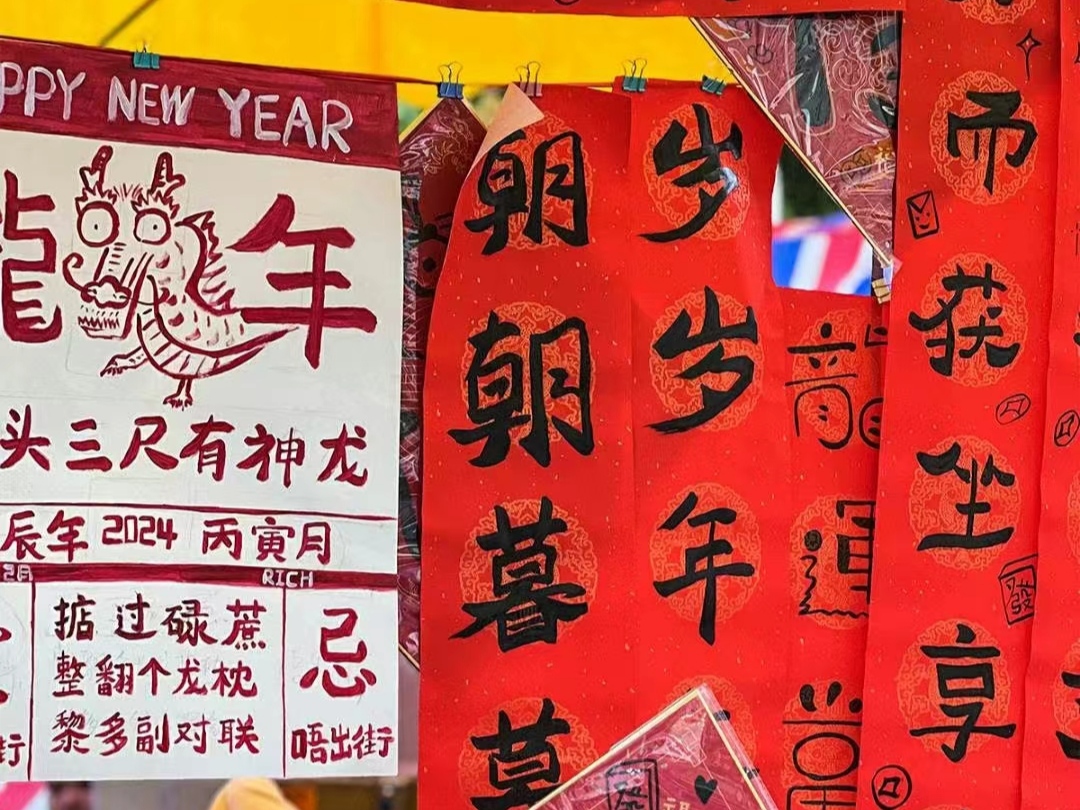 PPY NEW YEAR
龍年
头三尺有神龙
辰年 2024 丙寅月
2月 RICH
掂过碌蔗
整翻个龙枕
黎多副对联
忌
唔出街
街
朝朝暮暮
岁岁年
龍運當
而获坐享
發
發